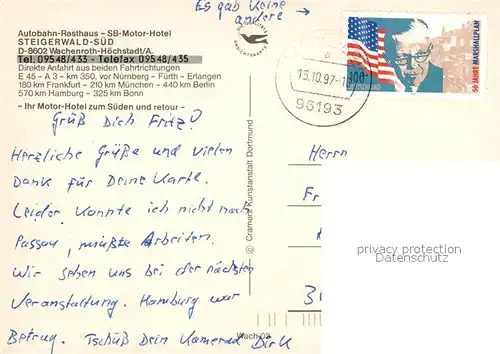 Es gab keine
andere
Autobahn-Rasthaus – SB-Motor-Hotel
STEIGERWALD-SÜD
D-8602 Wachenroth-Höchstadt/A.
Tel. 09548/433 - Telefax 09548/435
Direkte Anfahrt aus beiden Fahrtrichtungen
E 45 – A 3 – km 350, vor Nürnberg – Fürth – Erlangen
180 km Frankfurt – 210 km München – 440 km Berlin
570 km Hamburg – 325 km Bonn
– Ihr Motor-Hotel zum Süden und retour –
Grüß Dich Fritz!
Herzliche Grüße und vielen
Dank für Deine Karte.
Leider konnte ich nicht nach
Passau, müßte Arbeiten.
Wir sehen uns bei der nächsten
Veranstaltung. Hamburg war
Betrug. Tschüß Dein Kamerad Dirk
Wach 02
© Cramers Kunstanstalt Dortmund
ANSICHTSKARTE
15.10.97-1
96193
100
DEUTSCHLAND
50 JAHRE MARSHALLPLAN
Herrn
Fr
privacy protection
Datenschutz
3